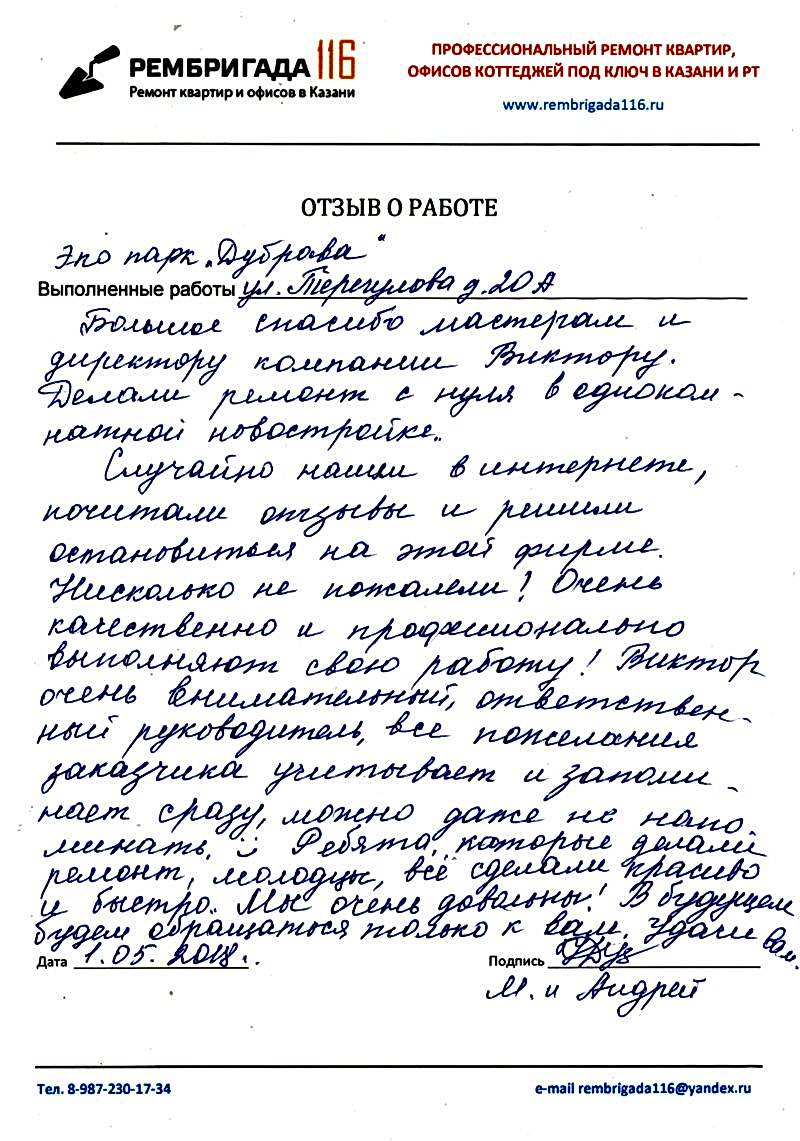 РЕМБРИГАДА 116
Ремонт квартир и офисов в Казани
ПРОФЕССИОНАЛЬНЫЙ РЕМОНТ КВАРТИР,
ОФИСОВ КОТТЕДЖЕЙ ПОД КЛЮЧ В КАЗАНИ И РТ
www.rembrigada116.ru
ОТЗЫВ О РАБОТЕ
Эко парк „Дубрава"
Выполненные работы ул. Терегулова д.20А
Большое спасибо мастерам и
директору компании Виктору.
Делали ремонт с нуля в одноком-
натной новостройке..
Случайно нашли в интернете,
почитали отзывы и решили
остановиться на этой фирме.
Нисколько не пожалели! Очень
качественно и професионально
выполняют свою работу! Виктор
очень внимательный, ответствен-
ный руководитель, все пожелания
заказчика учитывает и запоми-
нает сразу, можно даже не напо-
минать. Ребята, которые делали
ремонт, молодцы, всё сделали красиво
и быстро.. Мы очень довольны! В будущем
будем обращаться только к вам. Удачи вам.
Дата 1.05.2018г.
Подпись
М. и Андрей
Тел. 8-987-230-17-34
e-mail rembrigada116@yandex.ru